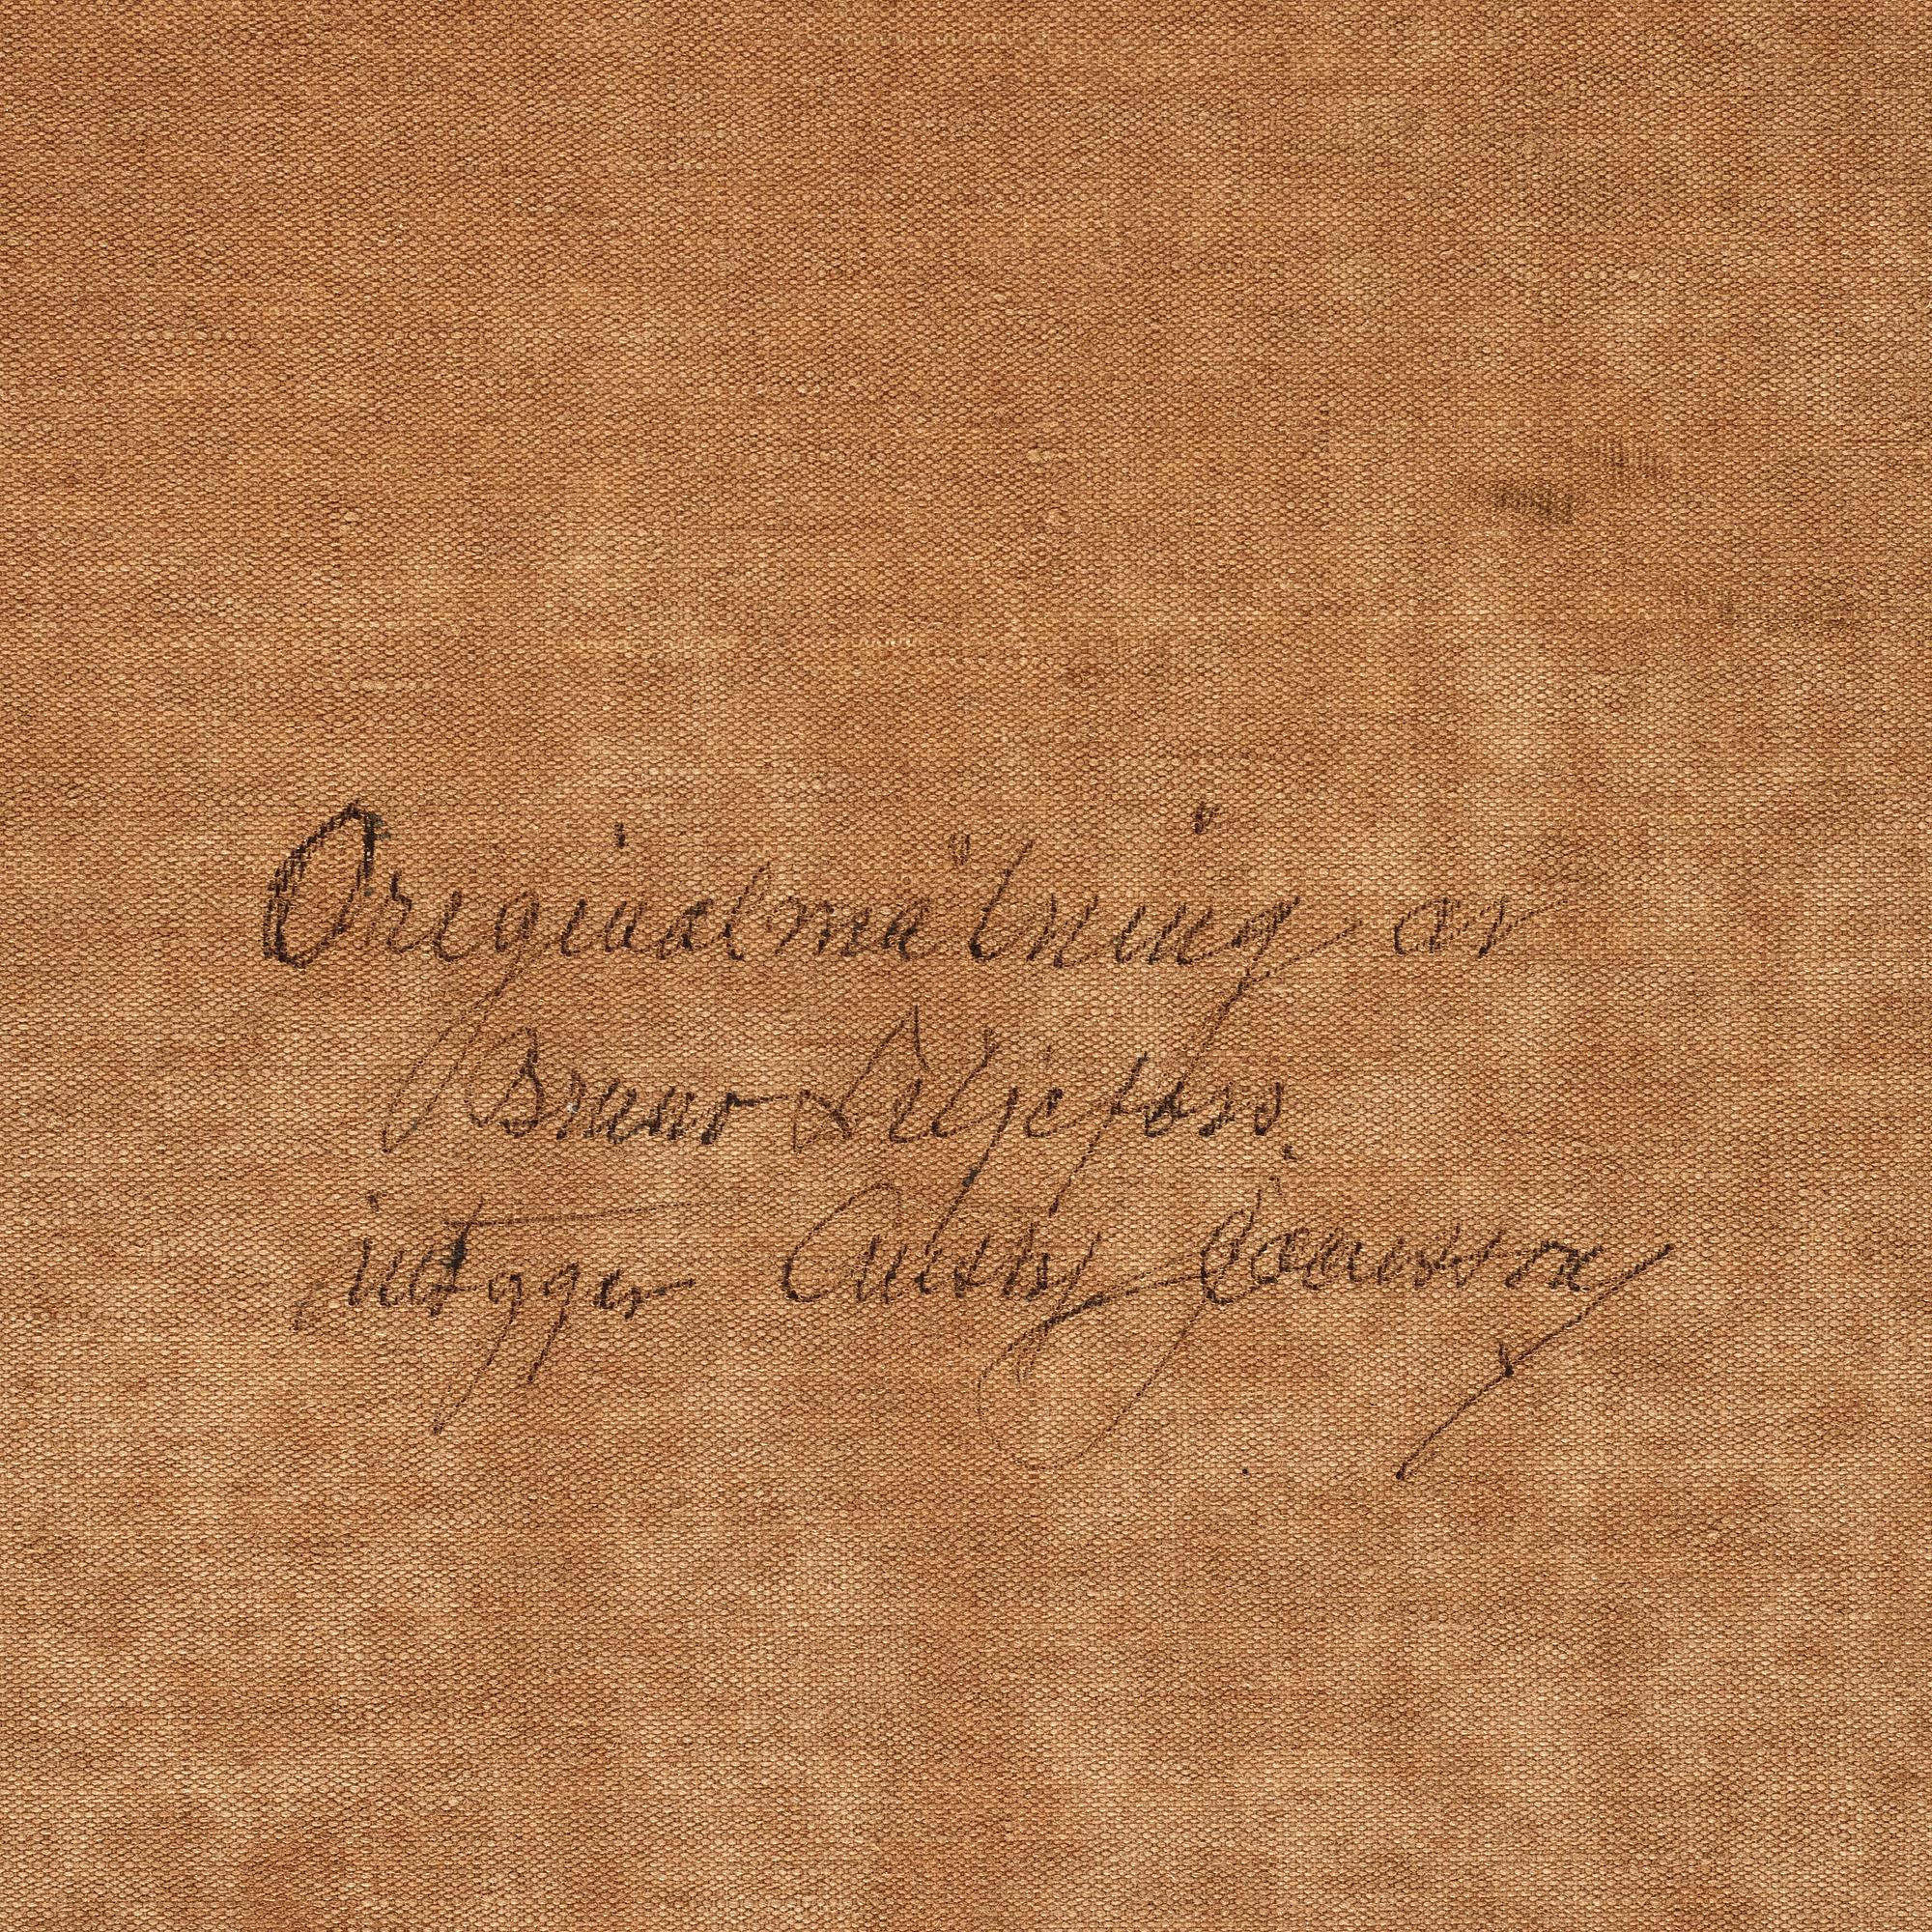 Originalmålning av
Bruno Liljefors.
intygar Lindorm